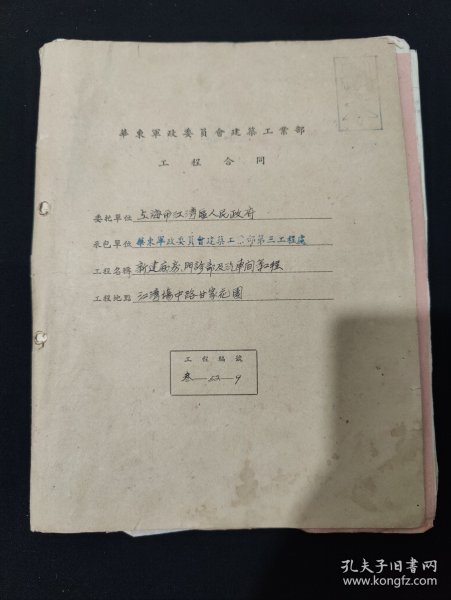 華東軍政委員會建築工業部
工程合同
委託單位 上海市江湾區人民政府
承包單位 華東軍政委員會建築工業部第三工程處
工程名稱 新建病房、門診部及汽車间等工程
工程地點 江灣場中路甘家花園
工程編號
叁—52—9
孔夫子旧书网
www.kongfz.com